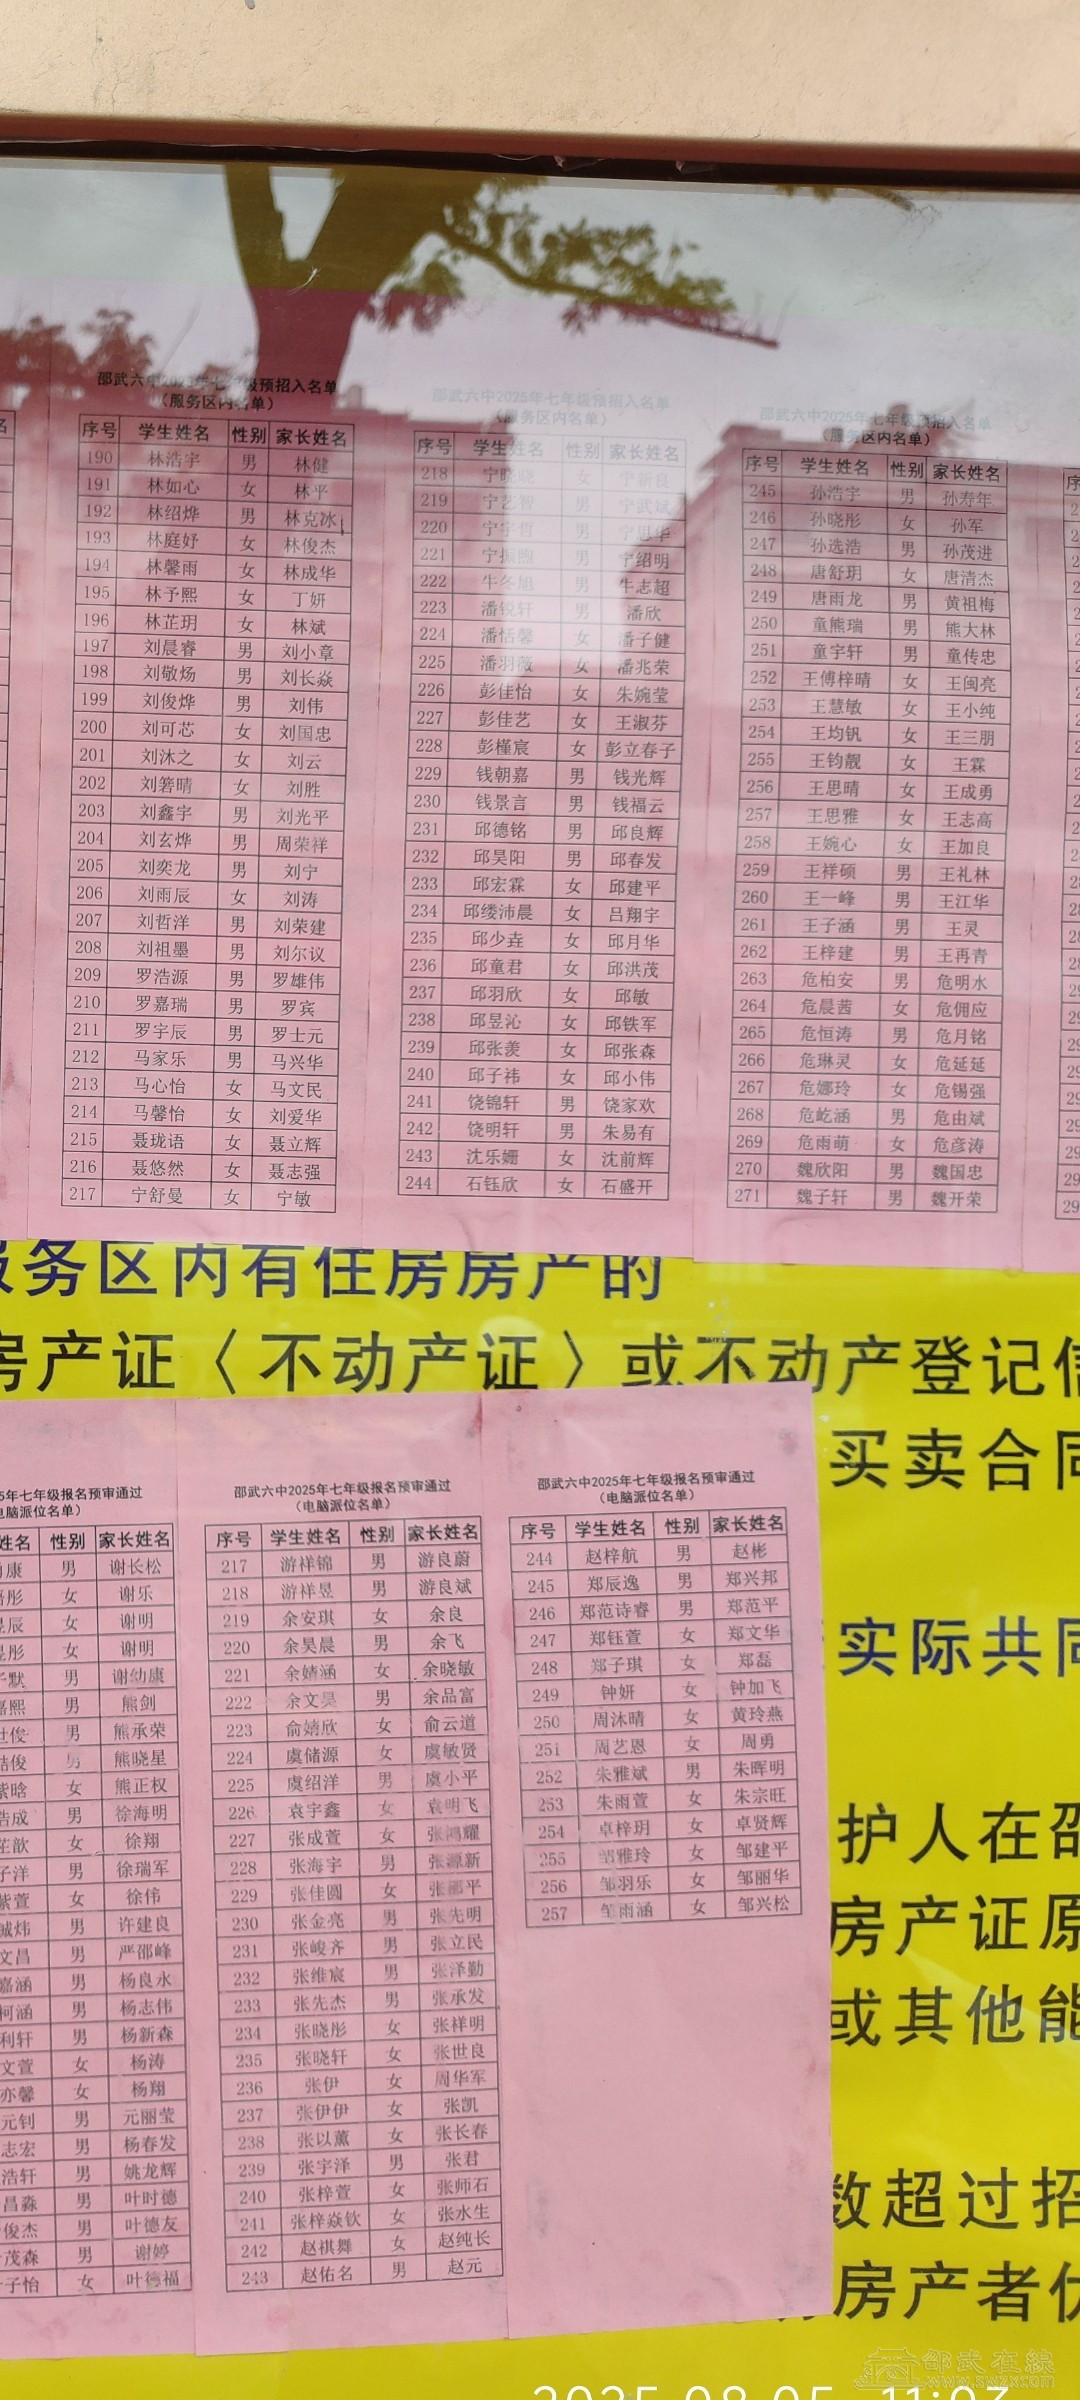 邵武六中2025年七年级预招入名单
（服务区内名单）
序号 学生姓名 性别 家长姓名
190 林浩宇 男 林健
191 林如心 女 林平
192 林绍烨 男 林克冰
193 林庭妤 女 林俊杰
194 林馨雨 女 林成华
195 林予熙 女 丁妍
196 林芷玥 女 林斌
197 刘晨睿 男 刘小章
198 刘敬炀 男 刘长焱
199 刘俊烨 男 刘伟
200 刘可芯 女 刘国忠
201 刘沐之 女 刘云
202 刘箬晴 女 刘胜
203 刘鑫宇 男 刘光平
204 刘玄烨 男 周荣祥
205 刘奕龙 男 刘宁
206 刘雨辰 女 刘涛
207 刘哲洋 男 刘荣建
208 刘祖墨 男 刘尔议
209 罗浩源 男 罗雄伟
210 罗嘉瑞 男 罗宾
211 罗宇辰 男 罗士元
212 马家乐 男 马兴华
213 马心怡 女 马文民
214 马馨怡 女 刘爱华
215 聂珑语 女 聂立辉
216 聂悠然 女 聂志强
217 宁舒曼 女 宁敏
邵武六中2025年七年级预招入名单
（服务区内名单）
序号 学生姓名 性别 家长姓名
218 宁晓晓 女 宁新良
219 宁艺智 男 宁武斌
220 宁宇哲 男 宁思华
221 宁振煦 男 宁绍明
222 牛冬旭 男 牛志超
223 潘锐轩 男 潘欣
224 潘恬馨 女 潘子健
225 潘羽薇 女 潘兆荣
226 彭佳怡 女 朱婉莹
227 彭佳艺 女 王淑芬
228 彭槿宸 女 彭立春子
229 钱朝嘉 男 钱光辉
230 钱景言 男 钱福云
231 邱德铭 男 邱良辉
232 邱昊阳 男 邱春发
233 邱宏霖 女 邱建平
234 邱缕沛晨 女 吕翔宇
235 邱少垚 女 邱月华
236 邱童君 女 邱洪茂
237 邱羽欣 女 邱敏
238 邱昱沁 女 邱铁军
239 邱张羡 女 邱张森
240 邱子祎 女 邱小伟
241 饶锦轩 男 饶家欢
242 饶明轩 男 朱易有
243 沈乐姗 女 沈前辉
244 石钰欣 女 石盛开
邵武六中2025年七年级预招入名单
（服务区内名单）
序号 学生姓名 性别 家长姓名
245 孙浩宇 男 孙寿年
246 孙晓彤 女 孙军
247 孙选浩 男 孙茂进
248 唐舒玥 女 唐清杰
249 唐雨龙 男 黄祖梅
250 童熊瑞 男 熊大林
251 童宇轩 男 童传忠
252 王傅梓晴 女 王闽亮
253 王慧敏 女 王小纯
254 王均钒 女 王三朋
255 王钧靓 女 王霖
256 王思晴 女 王成勇
257 王思雅 女 王志高
258 王婉心 女 王加良
259 王祥硕 男 王礼林
260 王一峰 男 王江华
261 王子涵 男 王灵
262 王梓建 男 王再青
263 危柏安 男 危明水
264 危晨茜 女 危佣应
265 危恒涛 男 危月铭
266 危琳灵 女 危延延
267 危娜玲 女 危锡强
268 危屹涵 男 危由斌
269 危雨萌 女 危彦涛
270 魏欣阳 男 魏国忠
271 魏子轩 男 魏开荣
服务区内有住房房产的
房产证〈不动产证〉或不动产登记信
买卖合同
实际共同
护人在邵
房产证原
或其他能
数超过招
房产者优
5年七年级报名预审通过
电脑派位名单）
姓名 性别 家长姓名
康 男 谢长松
彤 女 谢乐
辰 女 谢明
彤 女 谢明
默 男 谢幼康
熙 男 熊剑
俊 男 熊承荣
俊 男 熊晓星
晗 女 熊正权
成 男 徐海明
歆 女 徐翔
子洋 男 徐瑞军
紫萱 女 徐伟
炜 男 许建良
文昌 男 严邵峰
嘉涵 男 杨良水
柯涵 男 杨志伟
利轩 男 杨新森
文萱 女 杨涛
亦馨 女 杨翔
元钊 男 元丽莹
志宏 男 杨春发
浩轩 男 姚龙辉
昌淼 男 叶时德
俊杰 男 叶德友
茂森 男 谢婷
子怡 女 叶德福
邵武六中2025年七年级报名预审通过
（电脑派位名单）
序号 学生姓名 性别 家长姓名
217 游祥锦 男 游良蔚
218 游祥昱 男 游良斌
219 余安琪 女 余良
220 余昊晨 男 余飞
221 余婧涵 女 余晓敏
222 余文昊 男 余品富
223 俞嬉欣 女 俞云道
224 虞储源 女 虞敏贤
225 虞绍洋 男 虞小平
226 袁宇鑫 女 袁明飞
227 张成萱 女 张鸿耀
228 张海宇 男 张源新
229 张佳圆 女 张平
230 张金亮 男 张先明
231 张峻齐 男 张立民
232 张维宸 男 张泽勤
233 张先杰 男 张承发
234 张晓彤 女 张祥明
235 张晓轩 女 张世良
236 张伊 女 周华军
237 张伊伊 女 张凯
238 张以薰 女 张长春
239 张宇泽 男 张君
240 张梓萱 女 张师石
241 张梓焱钦 女 张水生
242 赵祺舞 女 赵纯长
243 赵佑名 男 赵元
邵武六中2025年七年级报名预审通过
（电脑派位名单）
序号 学生姓名 性别 家长姓名
244 赵梓航 男 赵彬
245 郑辰逸 男 郑兴邦
246 郑范诗睿 男 郑范平
247 郑钰萱 女 郑文华
248 郑子琪 女 郑磊
249 钟妍 女 钟加飞
250 周沐晴 女 黄玲燕
251 周艺恩 女 周勇
252 朱雅斌 男 朱晖明
253 朱雨萱 女 朱宗旺
254 卓梓玥 女 卓贤辉
255 邹雅玲 女 邹建平
256 邹羽乐 女 邹丽华
257 邹雨涵 女 邹兴松
邵武在線
www.swzx.com
2025.08.05 11:07